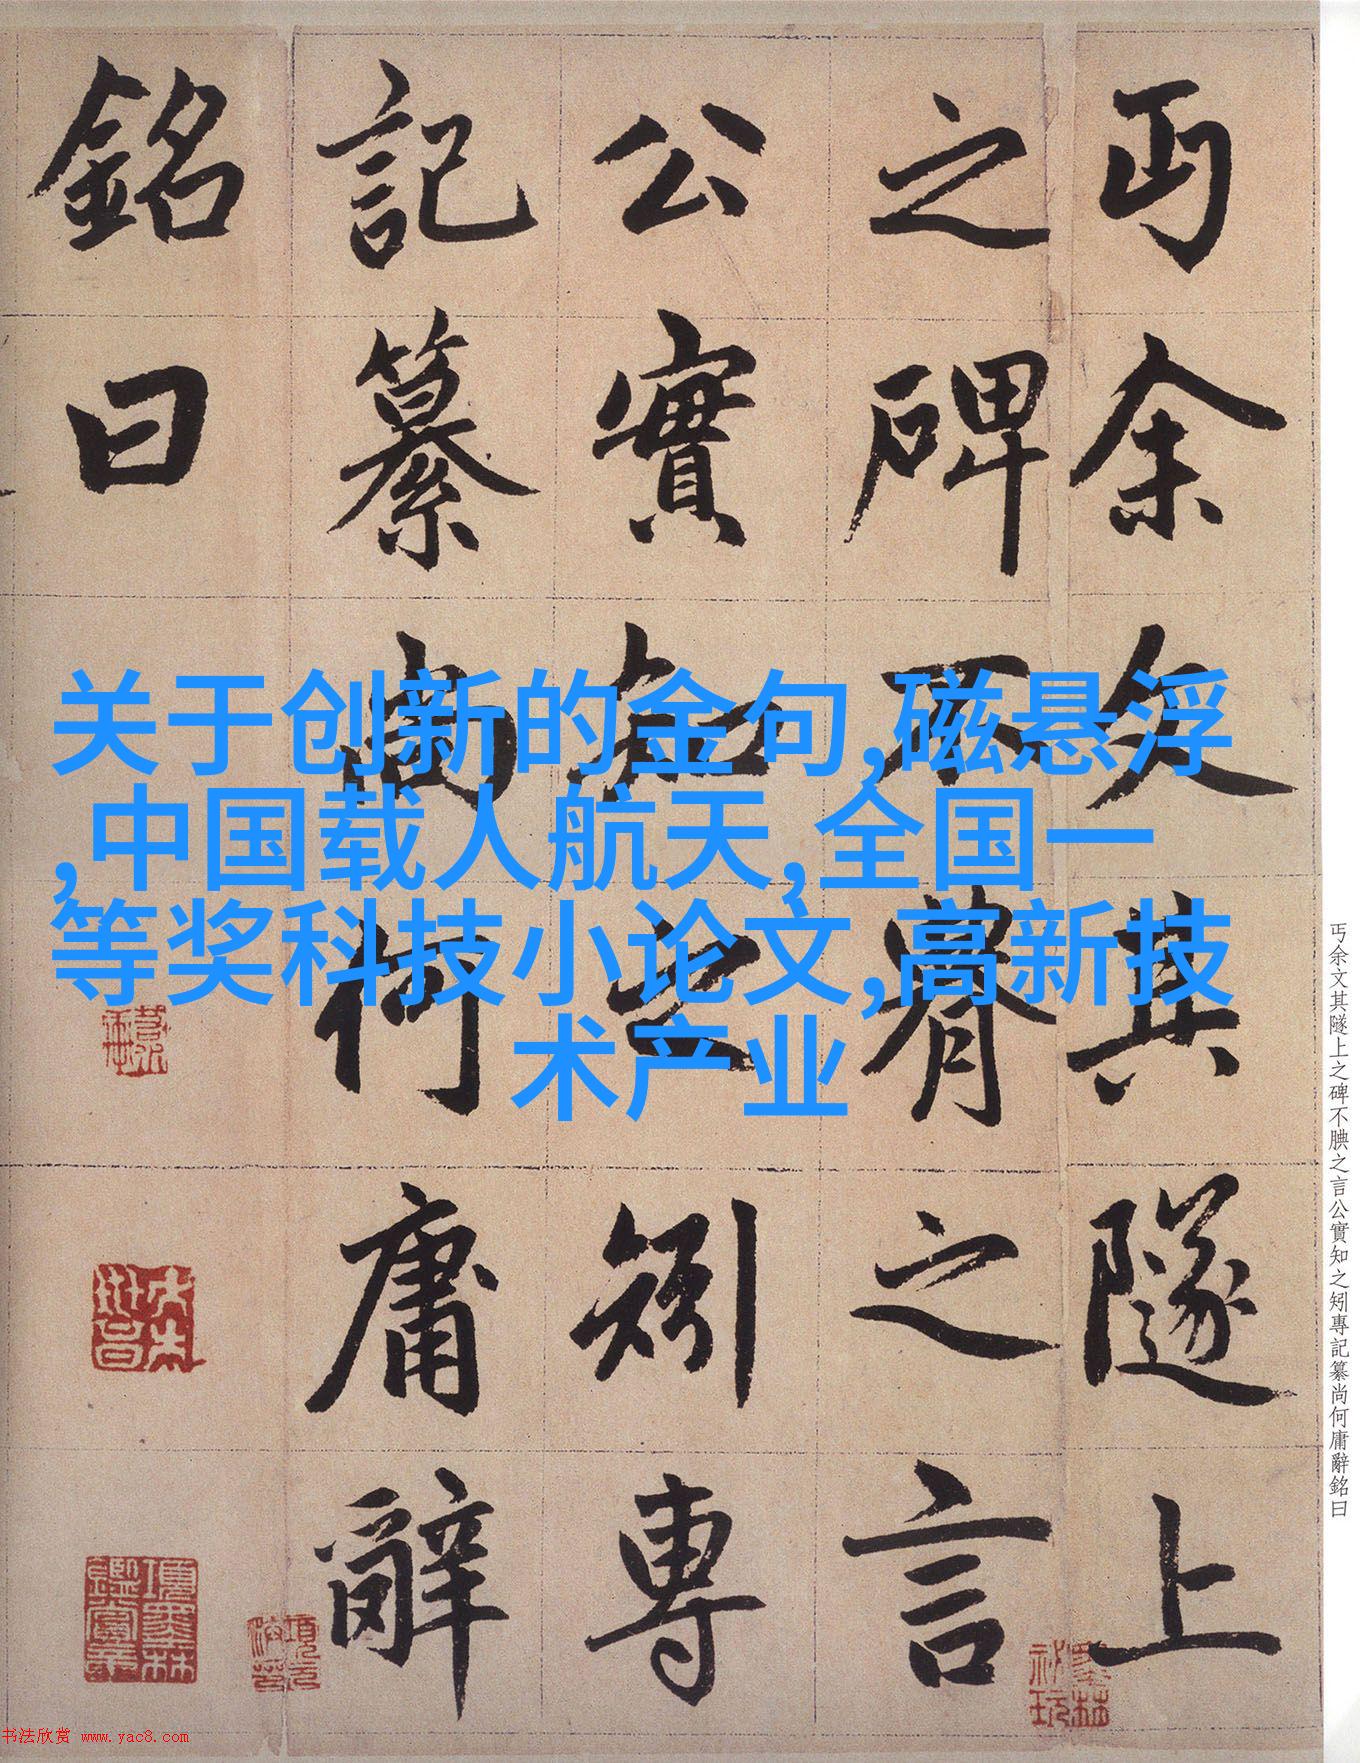 丐余文其隧上
之碑不腆之言
公實知之矧專
記纂尚何庸辭
銘曰
关于创新的金句,磁悬浮
,中国载人航天,全国一
等奖科技小论文,高新技
术产业
丐余文其隧上之碑不腆之言公實知之矧專記纂尚何庸辭銘曰
项墨林鑑賞章
书法欣赏 www.yac8.com